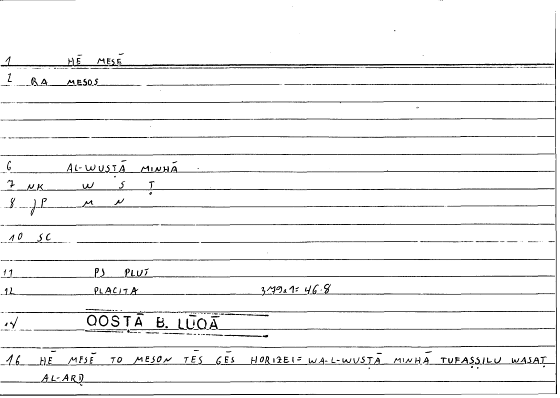 1 HĒ MESĒ
2 RA MESOS
6 AL-WUSṬĀ MINHĀ
7 NK W S Ṭ
8 JP M N
10 SC
11 PS PLUT
12 PLACITA 379a1= 46.8
QOSṬĀ B. LŪQĀ
16 HĒ MESĒ TO MESON TĒS GĒS HORIZEI= WA-L-WUSṬĀ MINHĀ TUFAṢṢILU WASAṬ
AL-ARḌ